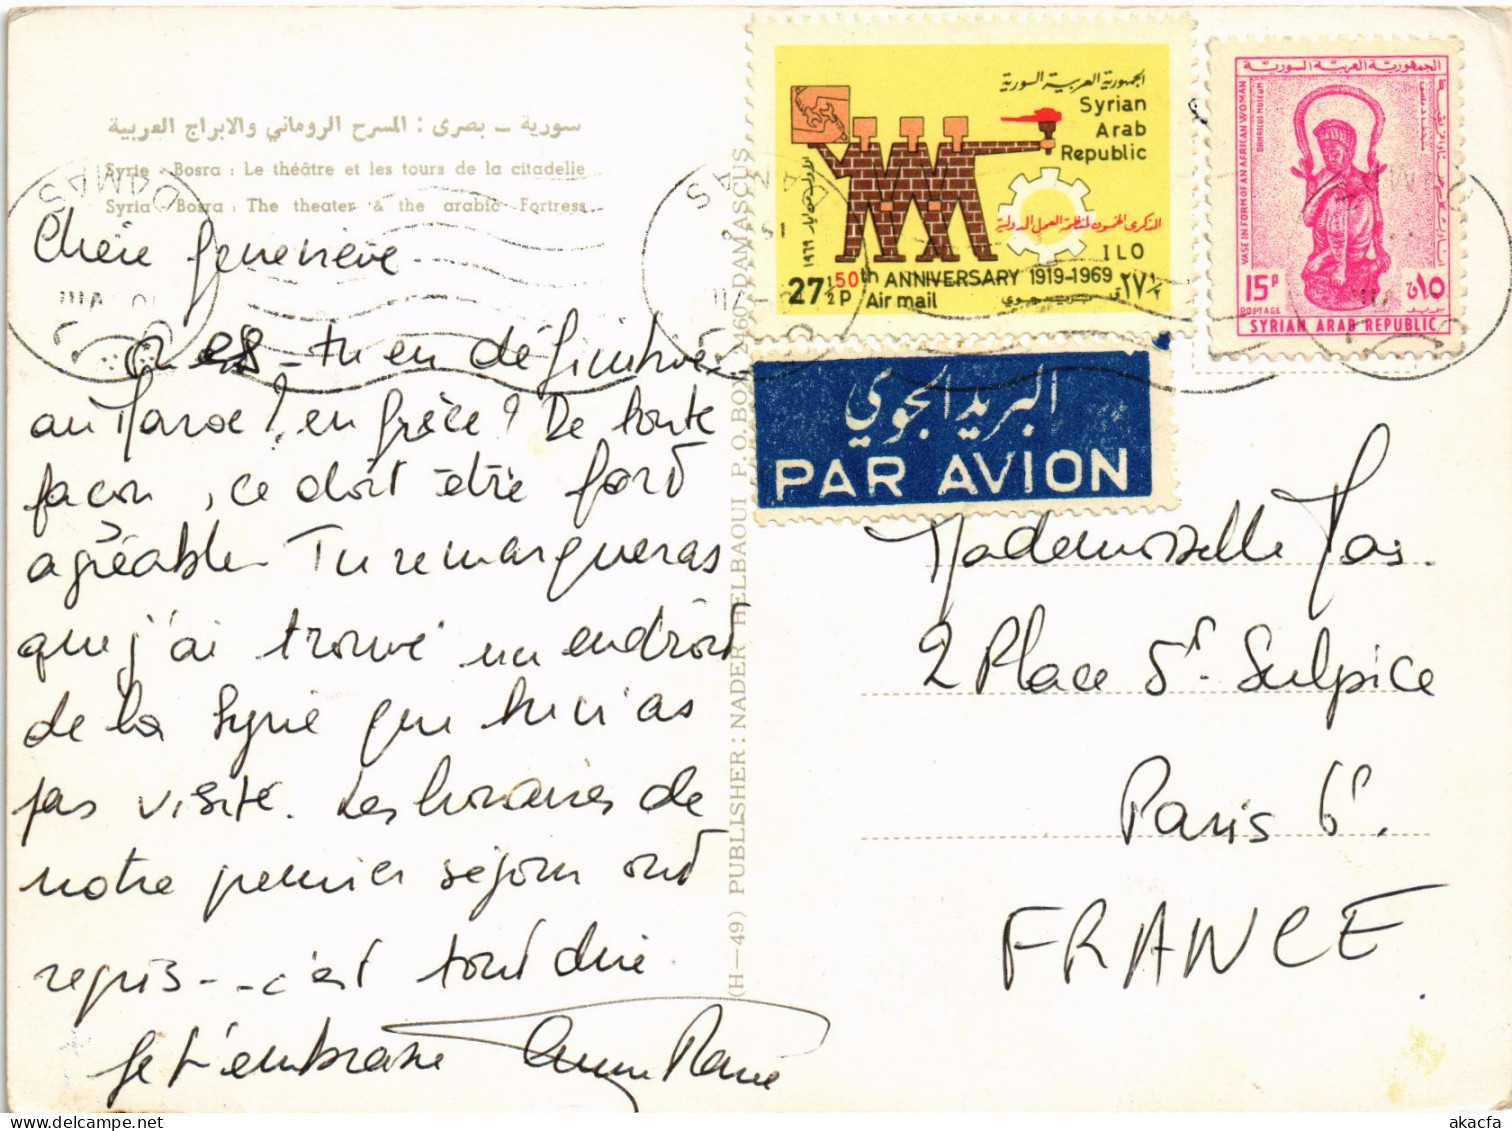 سورية ــ بصرى : المسرح الروماني والابراج العربية
Syrie - Bosra : Le théâtre et les tours de la citadelle
Syria - Bosra : The theater & the arabic Fortress
Chère Geneviève
Où es-tu en définitive
au Maroc ? en Grèce ? De toute
façon, ce doit être fort
agréable. Tu remarqueras
que j'ai trouvé un endroit
de la Syrie que tu n'as
pas visité. Les horaires de
notre premier séjour ont
repris -- c'est tout dire
Je t'embrasse Anne Marie
(H — 49) PUBLISHER : NADER HELBAOUI P.O.BOX DAMASCUS
DAMAS
DAMAS
الجمهورية العربية السورية
Syrian
Arab
Republic
الذكرى الخمسون لمنظمة العمل الدولية
ILO
50th ANNIVERSARY 1919-1969
27½P Air mail
بريد جوي
٢٧½
١٩٦٩
الجمهورية العربية السورية
VASE IN FORM OF AN AFRICAN WOMAN
DAMASCUS MUSEUM
15P
POSTAGE
١٥
SYRIAN ARAB REPUBLIC
البريد الجوي
PAR AVION
Mademoiselle Mas.
2 Place St. Sulpice
Paris 6e.
FRANCE
akacfa.com